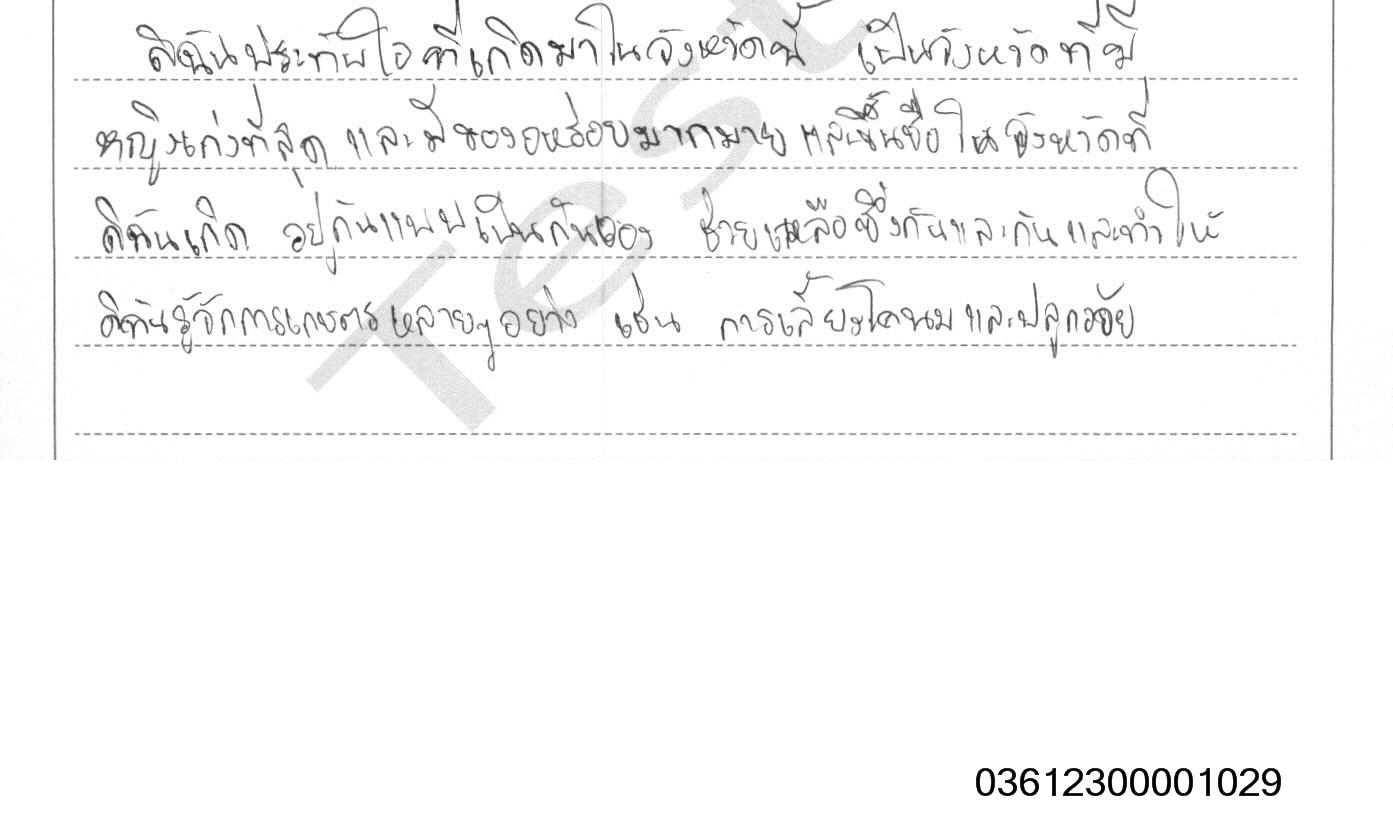 ดิฉันประทับใจที่เกิดมาในจังหวัดนี้ เป็นจังหวัดที่มี
หญิงเก่งที่สุด และมีของอหร่อยมากมาย และขึ้นชื่อในจังหวัดที่
ดิฉันเกิด อยู่กันแบบเป็นกันเอง ช่วยเหลือซึ่งกันและกันและทำให้
ดิฉันรู้จักการเกษตรหลายๆอย่าง เช่น การเลี้ยงโคนมและปลูกอ้อย
Test
03612300001029